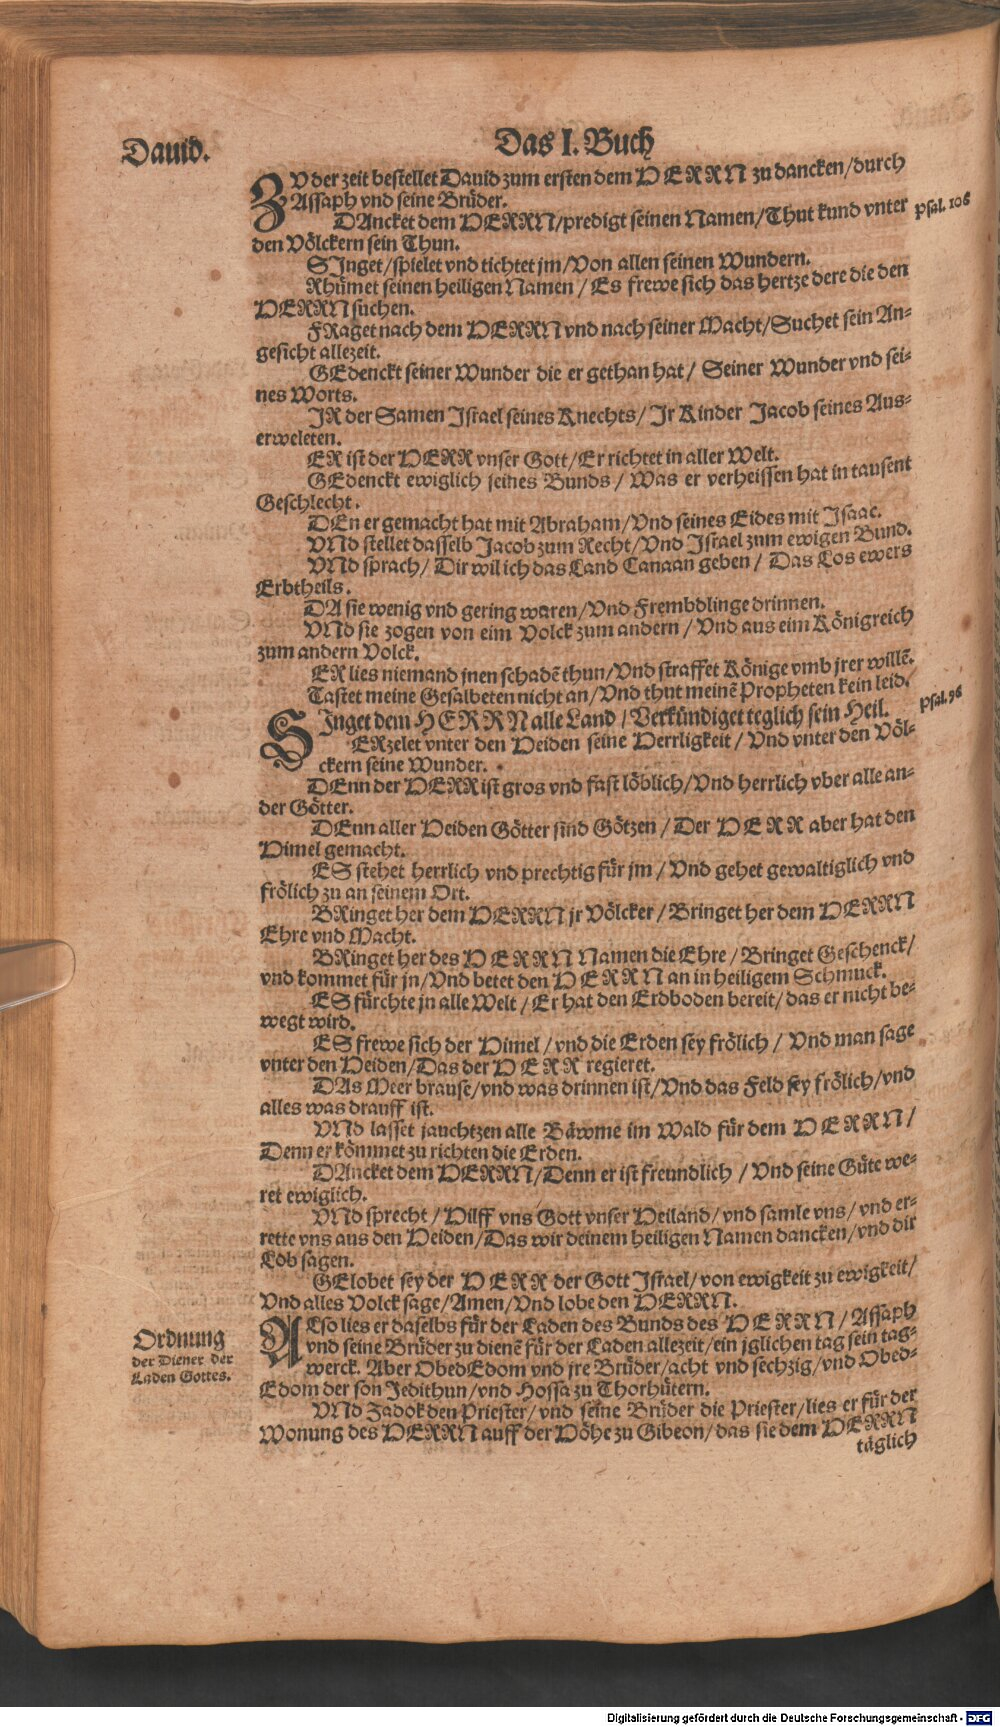 Dauid.
Das I. Buch
ZV der zeit bestellet Dauid zum ersten dem HERRN zu dancken/durch
Assaph vnd seine Brüder.
DAncket dem HERRN/predigt seinen Namen/Thut kund vnter
Psal. 106
den Völckern sein Thun.
SInget/spielet vnd tichtet jm/Von allen seinen Wundern.
Rhümet seinen heiligen Namen / Es frewe sich das hertze dere die den
HERRN suchen.
FRaget nach dem HERRN vnd nach seiner Macht/Suchet sein An-
gesicht allezeit.
GEdenckt seiner Wunder die er gethan hat / Seiner Wunder vnd sei-
nes Worts.
JR der Samen Jsrael seines Knechts/ Jr Kinder Jacob seines Aus-
erweleten.
ER ist der HERR vnser Gott/Er richtet in aller Welt.
GEdenckt ewiglich seines Bunds / Was er verheissen hat in tausent
Geschlecht.
DEn er gemacht hat mit Abraham/Vnd seines Eides mit Jsaac.
VNd stellet dasselb Jacob zum Recht/Vnd Jsrael zum ewigen Bund.
VNd sprach/ Dir wil ich das Land Canaan geben / Das Los ewers
Erbtheils.
DA sie wenig vnd gering waren/Vnd Frembdlinge drinnen.
VNd sie zogen von eim Volck zum andern / Vnd aus eim Königreich
zum andern Volck.
ER lies niemand jnen schadẽ thun/Vnd straffet Könige vmb jrer willẽ.
Tastet meine Gesalbeten nicht an/Vnd thut meinẽ Propheten kein leid.
SInget dem HERRN alle Land / Verkündiget teglich sein Heil.
Psal. 96
ERzelet vnter den Heiden seine Herrligkeit / Vnd vnter den Völ-
ckern seine Wunder.
DEnn der HERR ist gros vnd fast löblich/Vnd herrlich vber alle an-
der Götter.
DEnn aller Heiden Götter sind Götzen / Der HERR aber hat den
Himel gemacht.
ES stehet herrlich vnd prechtig für jm / Vnd gehet gewaltiglich vnd
frölich zu an seinem Ort.
BRinget her dem HERRN jr Völcker / Bringet her dem HERRN
Ehre vnd Macht.
BRinget her des HERRN Namen die Ehre / Bringet Geschenck/
vnd kommet für jn/Vnd betet den HERRN an in heiligem Schmuck.
ES fürchte jn alle Welt / Er hat den Erdboden bereit/ das er nicht be-
wegt wird.
ES frewe sich der Himel / vnd die Erden sey frölich / Vnd man sage
vnter den Heiden/Das der HERR regieret.
DAs Meer brause/vnd was drinnen ist/Vnd das Feld sey frölich/vnd
alles was drauff ist.
VNd lasset jauchtzen alle Bäwme im Wald für dem HERRN/
Denn er kömmet zu richten die Erden.
DAncket dem HERRN/Denn er ist freundlich / Vnd seine Güte we-
ret ewiglich.
VNd sprecht / Hilff vns Gott vnser Heiland/ vnd samle vns/ vnd er-
rette vns aus den Heiden/Das wir deinem heiligen Namen dancken/vnd dir
Lob sagen.
GElobet sey der HERR der Gott Jsrael/ von ewigkeit zu ewigkeit/
Vnd alles Volck sage/Amen/Vnd lobe den HERRN.
ALso lies er daselbs für der Laden des Bunds des HERRN / Assaph
vnd seine Brüder zu dienẽ für der Laden allezeit/ein jglichen tag sein tag-
werck. Aber ObedEdom vnd jre Brüder/acht vnd sechzig/vnd Obed-
Edom der son Jedithun/vnd Hossa zu Thorhütern.
Ordnung
der Diener der
Laden Gottes.
VNd Zadok den Priester/ vnd seine Brüder die Priester/ lies er für der
Wonung des HERRN auff der Höhe zu Gibeon/ das sie dem HERRN
täglich
Digitalisierung gefördert durch die Deutsche Forschungsgemeinschaft - DFG